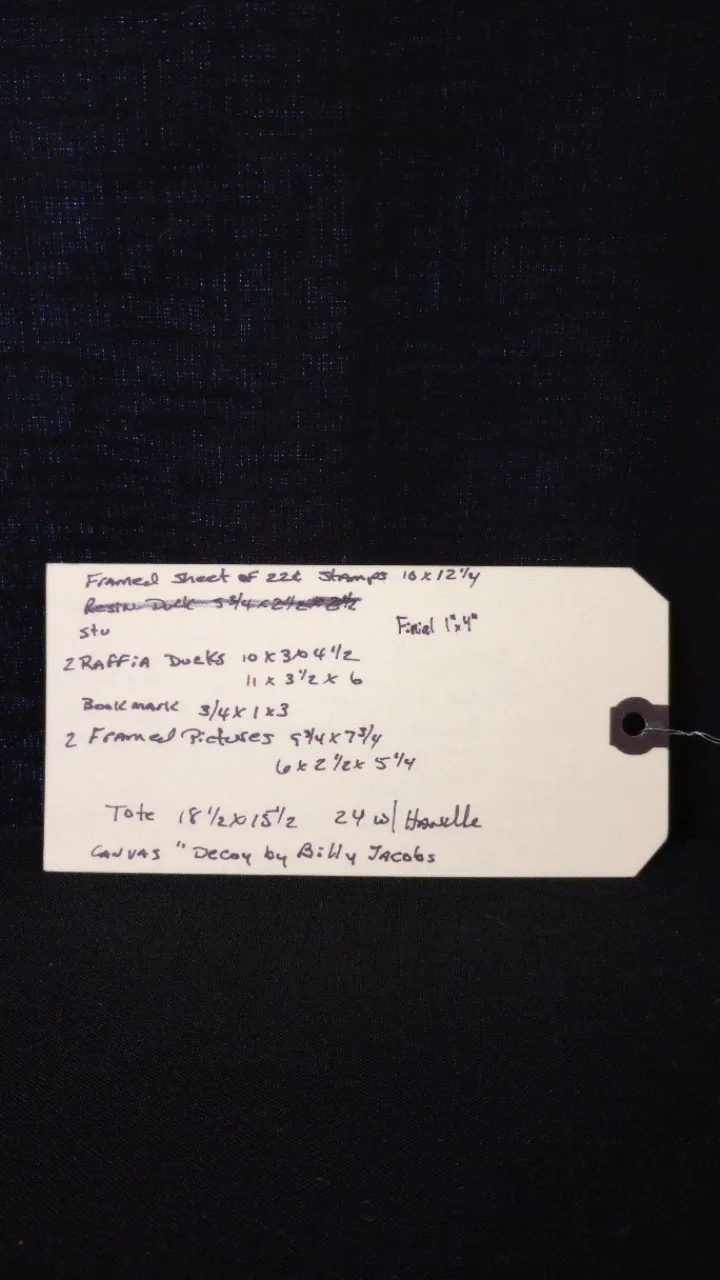 Framed sheet of 22¢ Stamps 10 x 12 1/4
Resin Duck 5 3/4 x 2 1/2 x 2 1/2
stu
Finial 1"x4"
2 RAFFiA Ducks 10 x 3 x 4 1/2
11 x 3 1/2 x 6
Bookmark 3/4 x 1 x 3
2 Framed Pictures 9 3/4 x 7 3/4
6 x 2 1/2 x 5 1/4
Tote 18 1/2 x 15 1/2 24 w/ Handle
CANVAS "Decoy by Billy Jacobs